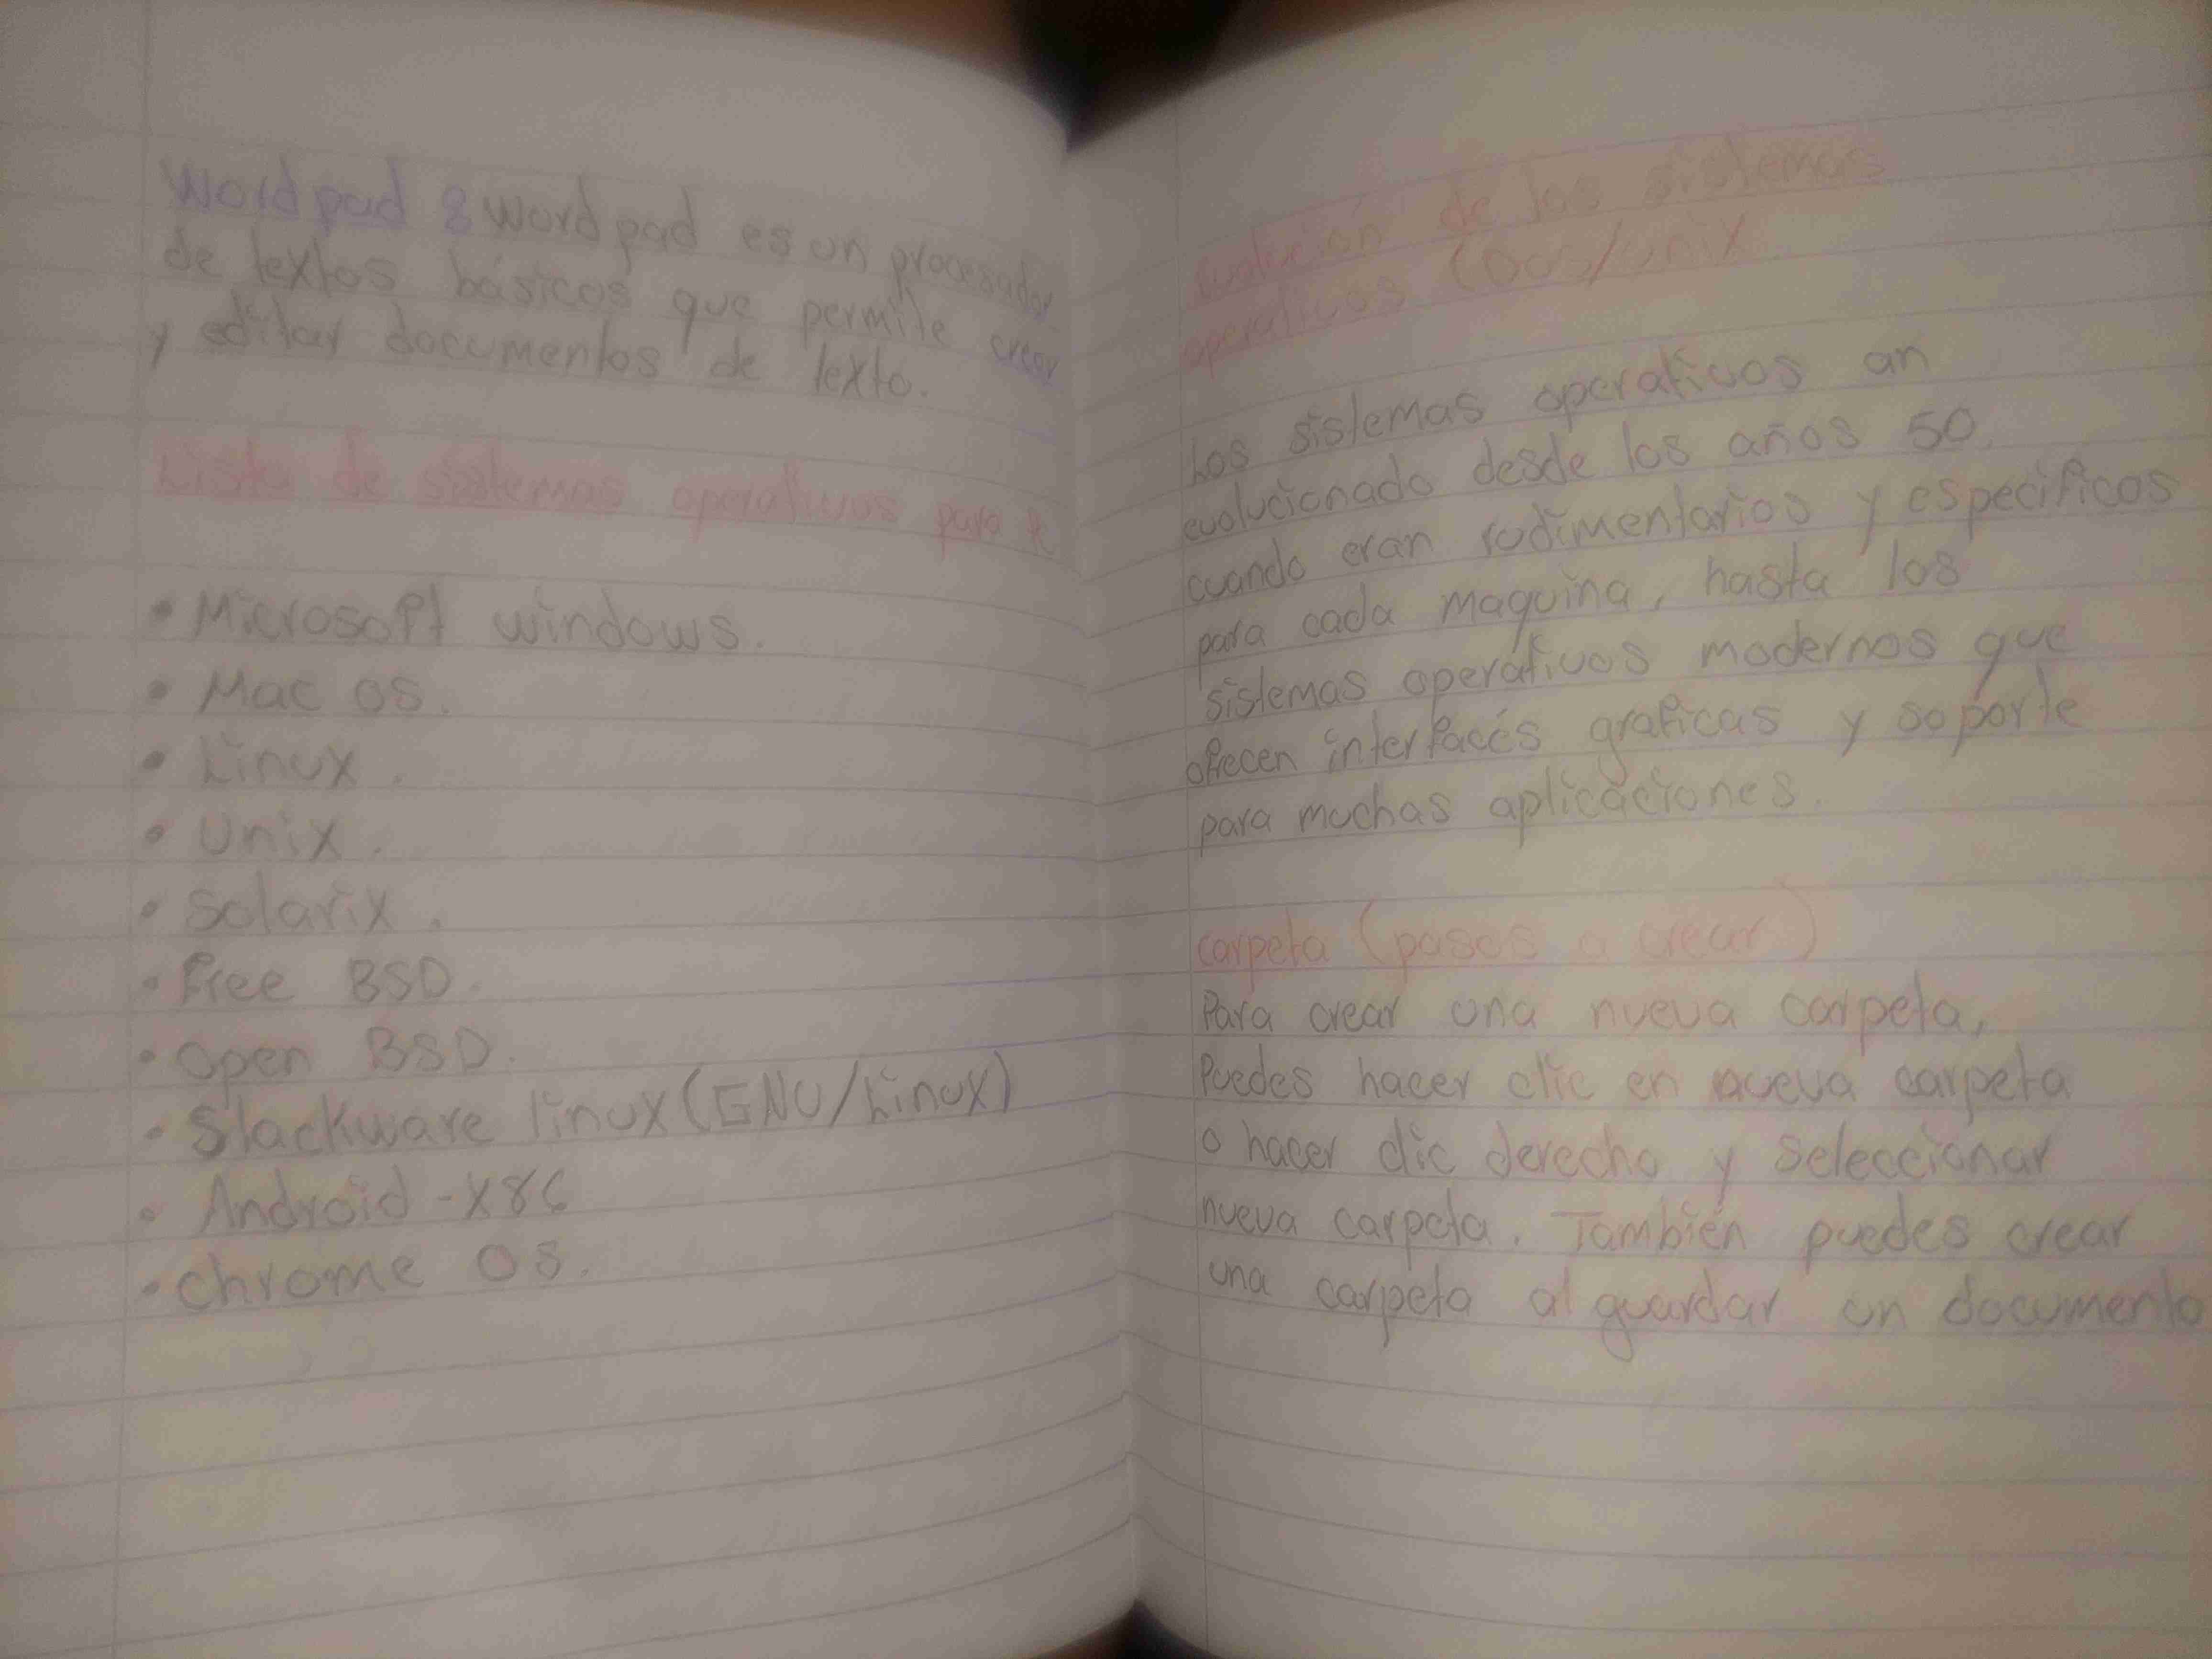 Wordpad : Wordpad es un procesador
de textos básicos que permite crear
y editar documentos de texto.
Lista de sistemas operativos para
• Microsoft windows.
• Mac OS.
• Linux.
• Unix.
• Solarix.
• Free BSD.
• Open BSD.
• Slackware linux (GNU/Linux)
• Android -X86
• chrome OS.
evolución de los sistemas
operativos (DOS/unix
Los sistemas operativos an
evolucionado desde los años 50,
cuando eran rudimentarios y especificos
para cada maquina, hasta los
sistemas operativos modernos que
ofrecen interfaces graficas y soporte
para muchas aplicaciones.
carpeta (pasos a crear)
Para crear una nueva carpeta,
Puedes hacer clic en nueva carpeta
o hacer clic derecho y seleccionar
nueva carpeta. También puedes crear
una carpeta al guardar un documento